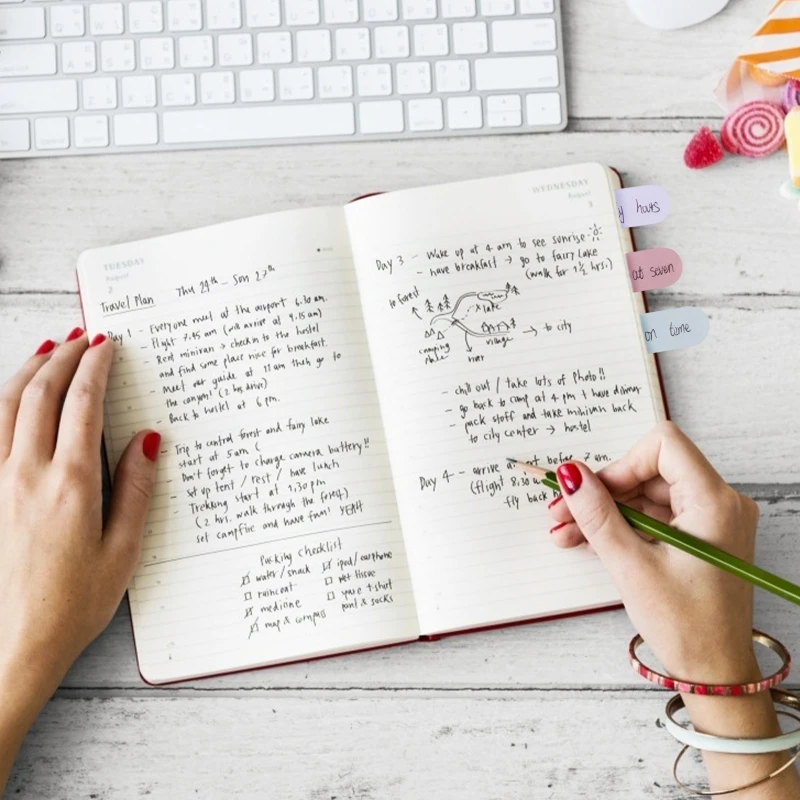 TUESDAY
August
2
Travel Plan Thu 24th - Sun 27th
Day 1 - Everyone meet at the airport 6.30 am.
- Flight 7.45 am (will arrive at 9.15 am)
- Rent minivan → checkin to the hostel
and find some place nice for breakfast.
- Meet our guide at 11 am then go to
the canyon! (2 hrs drive)
- Back to hostel at 6 pm.
- Trip to central forest and fairy lake
start at 5 am (
Don't forget to charge camera battery!!
- Set up tent / rest / have lunch
- Trekking start at 1.30 pm
(2 hrs. walk through the forest)
set campfire and have fun! YEAH
Packing Checklist
water/snack
raincoat
medicine
map & compass
ipod/earphone
wet tissue
spare t-shirt
pant & socks
WEDNESDAY
August
3
Day 3 - Wake up at 4 am to see sunrise
- have breakfast → go to fairy Lake
(walk for 1 1/2 hrs.)
to forest
lake
camping place
village
→ to city
- chill out / take lots of photo!!
- go back to camp at 4 pm + have dinner
- pack stuff and take minivan back
to city center → hostel
Day 4 - arrive before 7 am.
(flight 8.30
fly back
hours
seven
on time